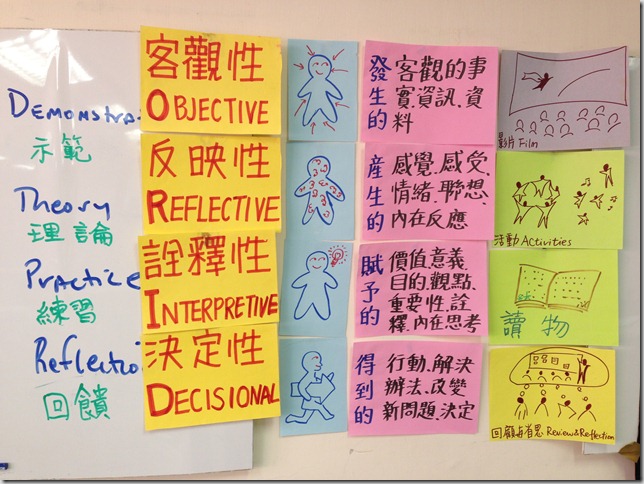 DEMONSTRA
示範
Theory
理論
PRACTICE
練習
Reflectio
回饋
客觀性
OBJECTIVE
反映性
REFLECTIVE
詮釋性
INTERPRETIVE
決定性
DECISIONAL
發生的
客觀的事
實、資訊、資
料
產生的
感覺、感受、
情緒、聯想、
內在反應
賦予的
價值、意義
目的、觀點、
重要性、詮
釋、內在思考
得到的
行動、解決
辦法、改變
新問題、決定
影片 Film
活動 Activities
讀物
回顧与省思 Review & Reflection